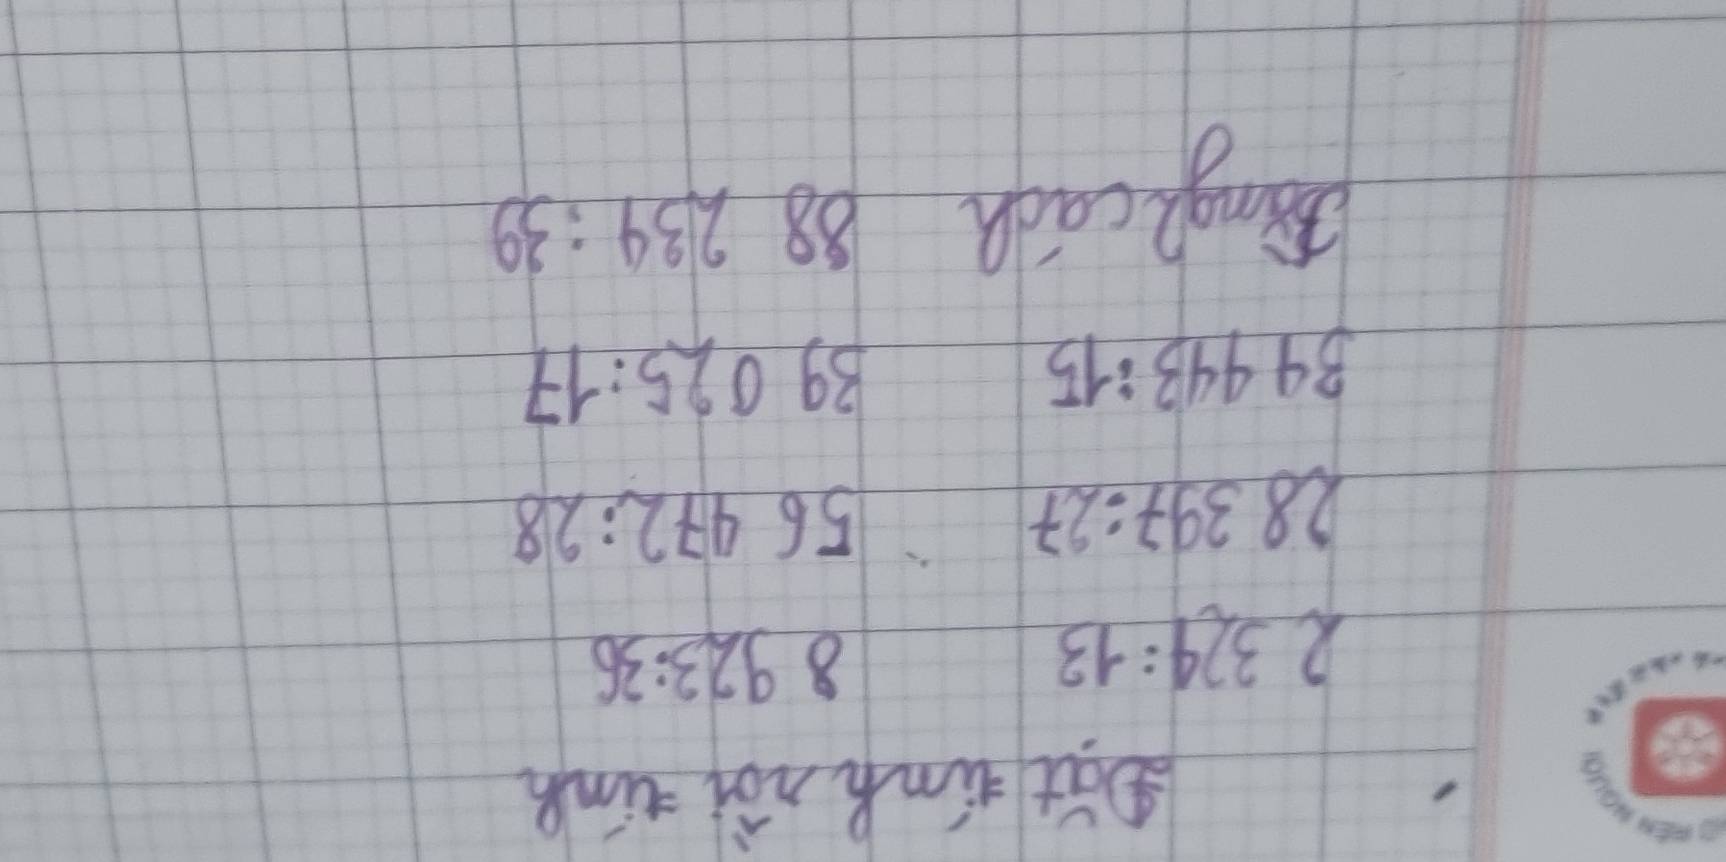 Đặt tính rồi tính
2 324 : 13 8 923 : 36
28 397 : 27 56 472 : 28
34 443 : 15 39 025 : 17
Bằng 2 cách 88 234 : 39